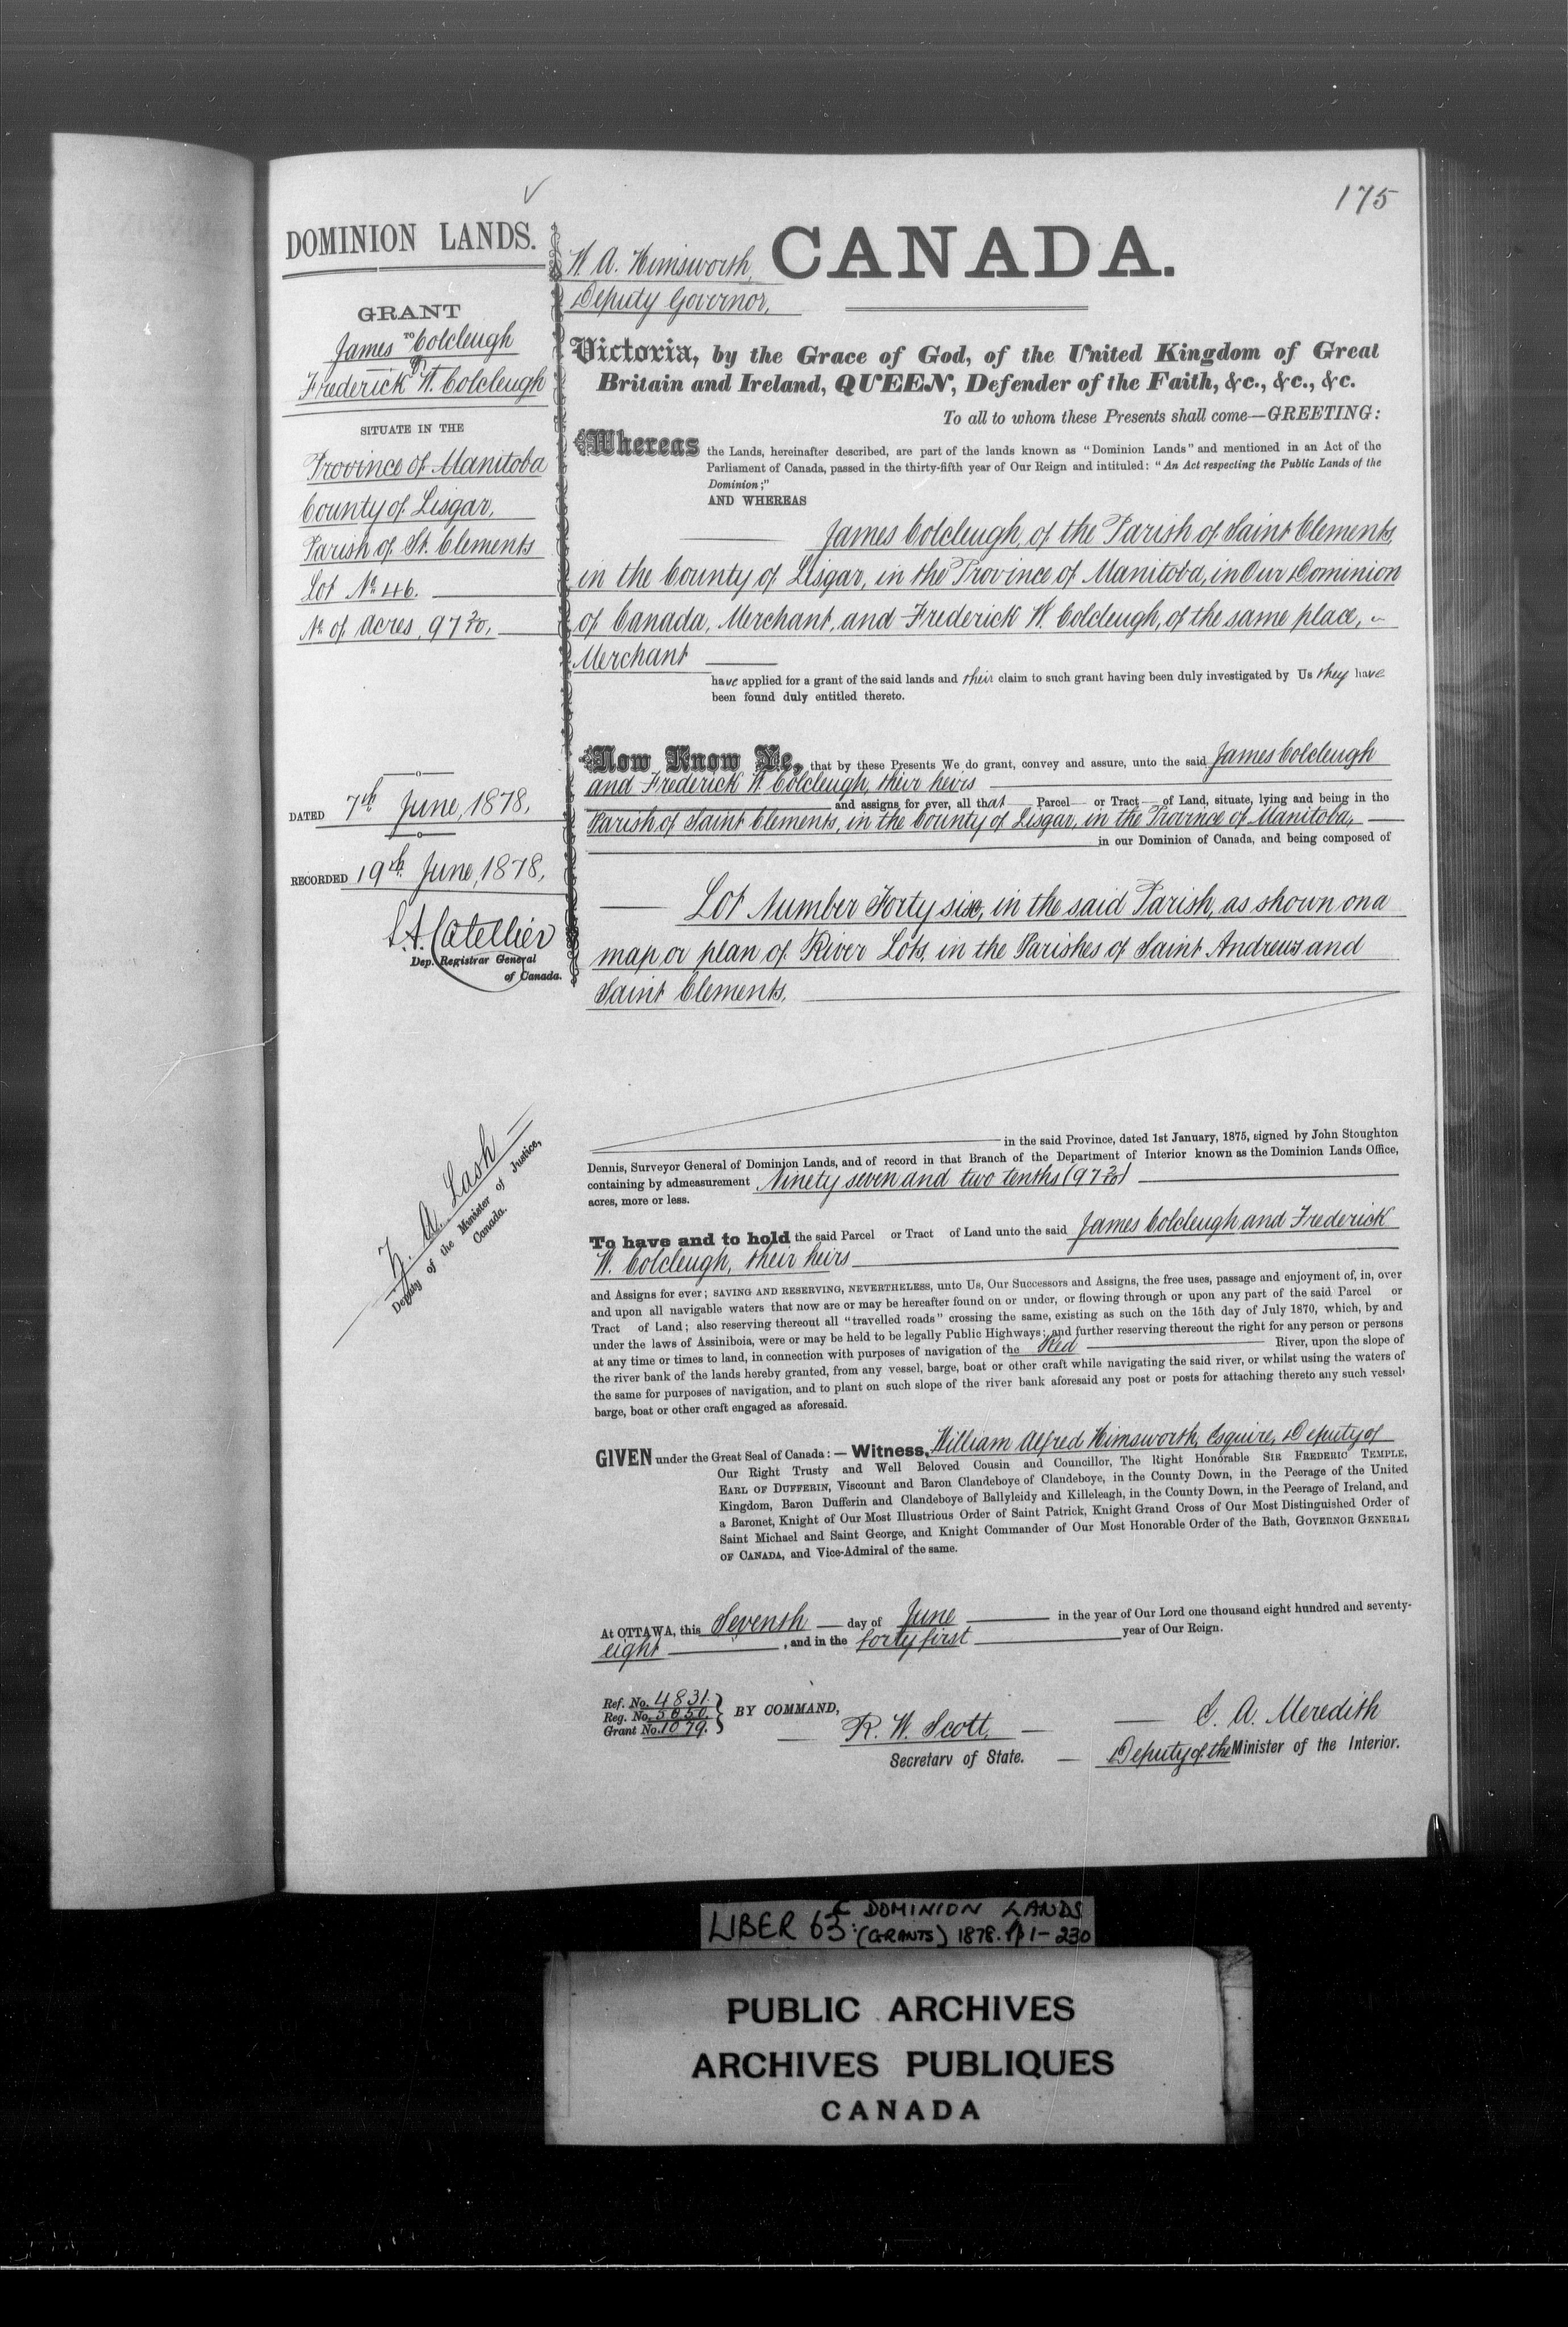 175
DOMINION LANDS.
GRANT
TO
James Colcleugh
&
Frederick W. Colcleugh
SITUATE IN THE
Province of Manitoba
County of Lisgar,
Parish of St. Clements
Lot No. 46.
No. of Acres, 97 2/10,
DATED 7th June, 1878,
RECORDED 19th June, 1878,
L.A. Catellier
Dep. Registrar General
of Canada.
Z. A. Lash
Deputy of the Minister of Justice,
Canada.
W. A. Himsworth,
Deputy Governor,
CANADA.
Victoria, by the Grace of God, of the United Kingdom of Great
Britain and Ireland, QUEEN, Defender of the Faith, &c., &c., &c.
To all to whom these Presents shall come—GREETING:
Whereas the Lands, hereinafter described, are part of the lands known as "Dominion Lands" and mentioned in an Act of the
Parliament of Canada, passed in the thirty-fifth year of Our Reign and intituled: "An Act respecting the Public Lands of the
Dominion;"
AND WHEREAS
James Colcleugh, of the Parish of Saint Clements,
in the County of Lisgar, in the Province of Manitoba, in Our Dominion
of Canada, Merchant, and Frederick W. Colcleugh, of the same place,
Merchant
have applied for a grant of the said lands and their claim to such grant having been duly investigated by Us they have
been found duly entitled thereto.
Now Know Ye, that by these Presents We do grant, convey and assure, unto the said James Colcleugh
and Frederick W. Colcleugh, their heirs
and assigns for ever, all that Parcel or Tract of Land, situate, lying and being in the
Parish of Saint Clements, in the County of Lisgar, in the Province of Manitoba,
in our Dominion of Canada, and being composed of
Lot Number Forty six, in the said Parish, as shown on a
map or plan of River Lots, in the Parishes of Saint Andrews and
Saint Clements,
in the said Province, dated 1st January, 1875, signed by John Stoughton
Dennis, Surveyor General of Dominion Lands, and of record in that Branch of the Department of Interior known as the Dominion Lands Office,
containing by admeasurement Ninety seven and two tenths (97 2/10)
acres, more or less.
To have and to hold the said Parcel or Tract of Land unto the said James Colcleugh and Frederick
W. Colcleugh, their heirs
and Assigns for ever; SAVING AND RESERVING, NEVERTHELESS, unto Us, Our Successors and Assigns, the free uses, passage and enjoyment of, in, over
and upon all navigable waters that now are or may be hereafter found on or under, or flowing through or upon any part of the said Parcel or
Tract of Land; also reserving thereout all "travelled roads" crossing the same, existing as such on the 15th day of July 1870, which, by and
under the laws of Assiniboia, were or may be held to be legally Public Highways; and further reserving thereout the right for any person or persons
at any time or times to land, in connection with purposes of navigation of the Red River, upon the slope of
the river bank of the lands hereby granted, from any vessel, barge, boat or other craft while navigating the said river, or whilst using the waters of
the same for purposes of navigation, and to plant on such slope of the river bank aforesaid any post or posts for attaching thereto any such vessel,
barge, boat or other craft engaged as aforesaid.
GIVEN under the Great Seal of Canada: — Witness, William Alfred Himsworth, Esquire, Deputy of
Our Right Trusty and Well Beloved Cousin and Councillor, The Right Honorable SIR FREDERIC TEMPLE,
EARL OF DUFFERIN, Viscount and Baron Clandeboye of Clandeboye, in the County Down, in the Peerage of the United
Kingdom, Baron Dufferin and Clandeboye of Ballyleidy and Killeleagh, in the County Down, in the Peerage of Ireland, and
a Baronet, Knight of Our Most Illustrious Order of Saint Patrick, Knight Grand Cross of Our Most Distinguished Order of
Saint Michael and Saint George, and Knight Commander of Our Most Honorable Order of the Bath, GOVERNOR GENERAL
OF CANADA, and Vice-Admiral of the same.
At OTTAWA, this Seventh day of June in the year of Our Lord one thousand eight hundred and seventy-
eight, and in the forty first year of Our Reign.
Ref. No. 4831.
Reg. No. 5050.
Grant No. 1079.
BY COMMAND,
R. W. Scott,
Secretary of State.
E. A. Meredith
Deputy of the Minister of the Interior.
LIBER 63 C DOMINION LANDS
(GRANTS) 1878. pp 1-230
PUBLIC ARCHIVES
ARCHIVES PUBLIQUES
CANADA